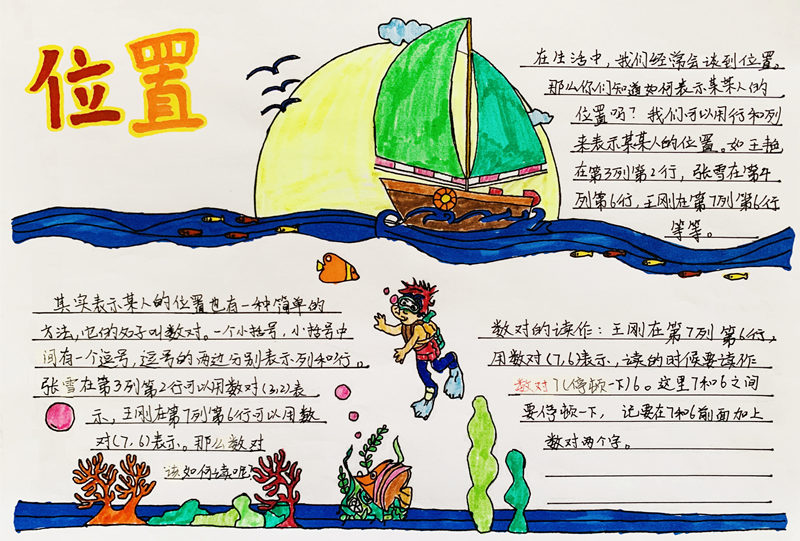 位置
在生活中，我们经常会谈到位置。
那么你们知道如何表示某某人的
位置吗？我们可以用行和列
来表示某某人的位置。如王艳
在第3列第2行，张雪在第4
列第6行，王刚在第7列第6行
等等。
其实表示某人的位置也有一种简单的
方法，它的名字叫数对。一个小括号，小括号中
间有一个逗号，逗号的两边分别表示列和行。
张雪在第3列第2行可以用数对(3,2)表
示，王刚在第7列第6行可以用数
对(7,6)表示。那么数对
该如何读呢？
数对的读作：王刚在第7列第6行，
用数对(7,6)表示，读的时候要读作
数对7(停顿一下)6。这里7和6之间
要停顿一下，记要在7和6前面加上
数对两个字。